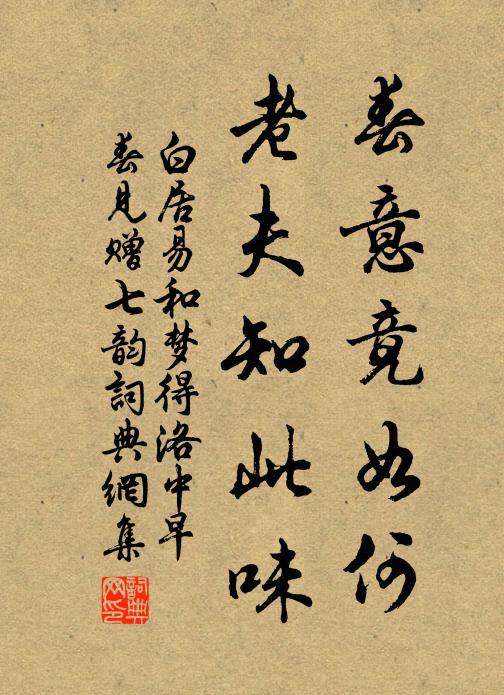 春意竟如何
老夫知此味
白居易和梦得洛中早
春見赠七韵詞典網集
詞典
网印